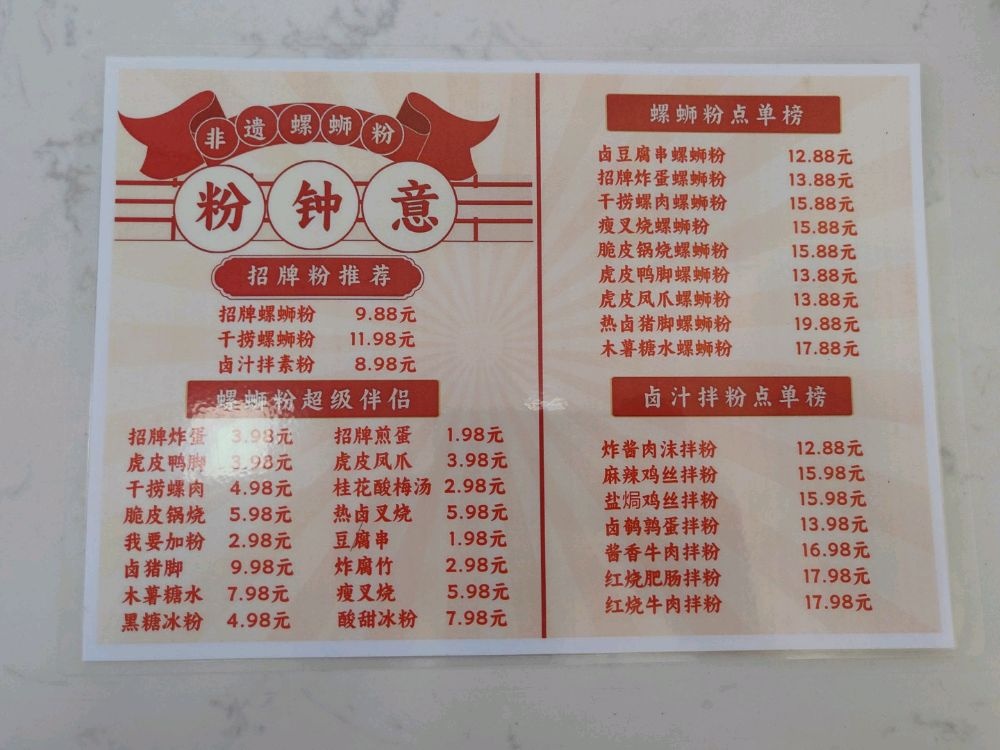 非遗螺蛳粉
粉钟意
招牌粉推荐
招牌螺蛳粉 9.88元
干捞螺蛳粉 11.98元
卤汁拌素粉 8.98元
螺蛳粉超级伴侣
招牌炸蛋 3.98元 招牌煎蛋 1.98元
虎皮鸭脚 3.98元 虎皮凤爪 3.98元
干捞螺肉 4.98元 桂花酸梅汤 2.98元
脆皮锅烧 5.98元 热卤叉烧 5.98元
我要加粉 2.98元 豆腐串 1.98元
卤猪脚 9.98元 炸腐竹 2.98元
木薯糖水 7.98元 瘦叉烧 5.98元
黑糖冰粉 4.98元 酸甜冰粉 7.98元
螺蛳粉点单榜
卤豆腐串螺蛳粉 12.88元
招牌炸蛋螺蛳粉 13.88元
干捞螺肉螺蛳粉 15.88元
瘦叉烧螺蛳粉 15.88元
脆皮锅烧螺蛳粉 15.88元
虎皮鸭脚螺蛳粉 13.88元
虎皮凤爪螺蛳粉 13.88元
热卤猪脚螺蛳粉 19.88元
木薯糖水螺蛳粉 17.88元
卤汁拌粉点单榜
炸酱肉沫拌粉 12.88元
麻辣鸡丝拌粉 15.98元
盐焗鸡丝拌粉 15.98元
卤鹌鹑蛋拌粉 13.98元
酱香牛肉拌粉 16.98元
红烧肥肠拌粉 17.98元
红烧牛肉拌粉 17.98元